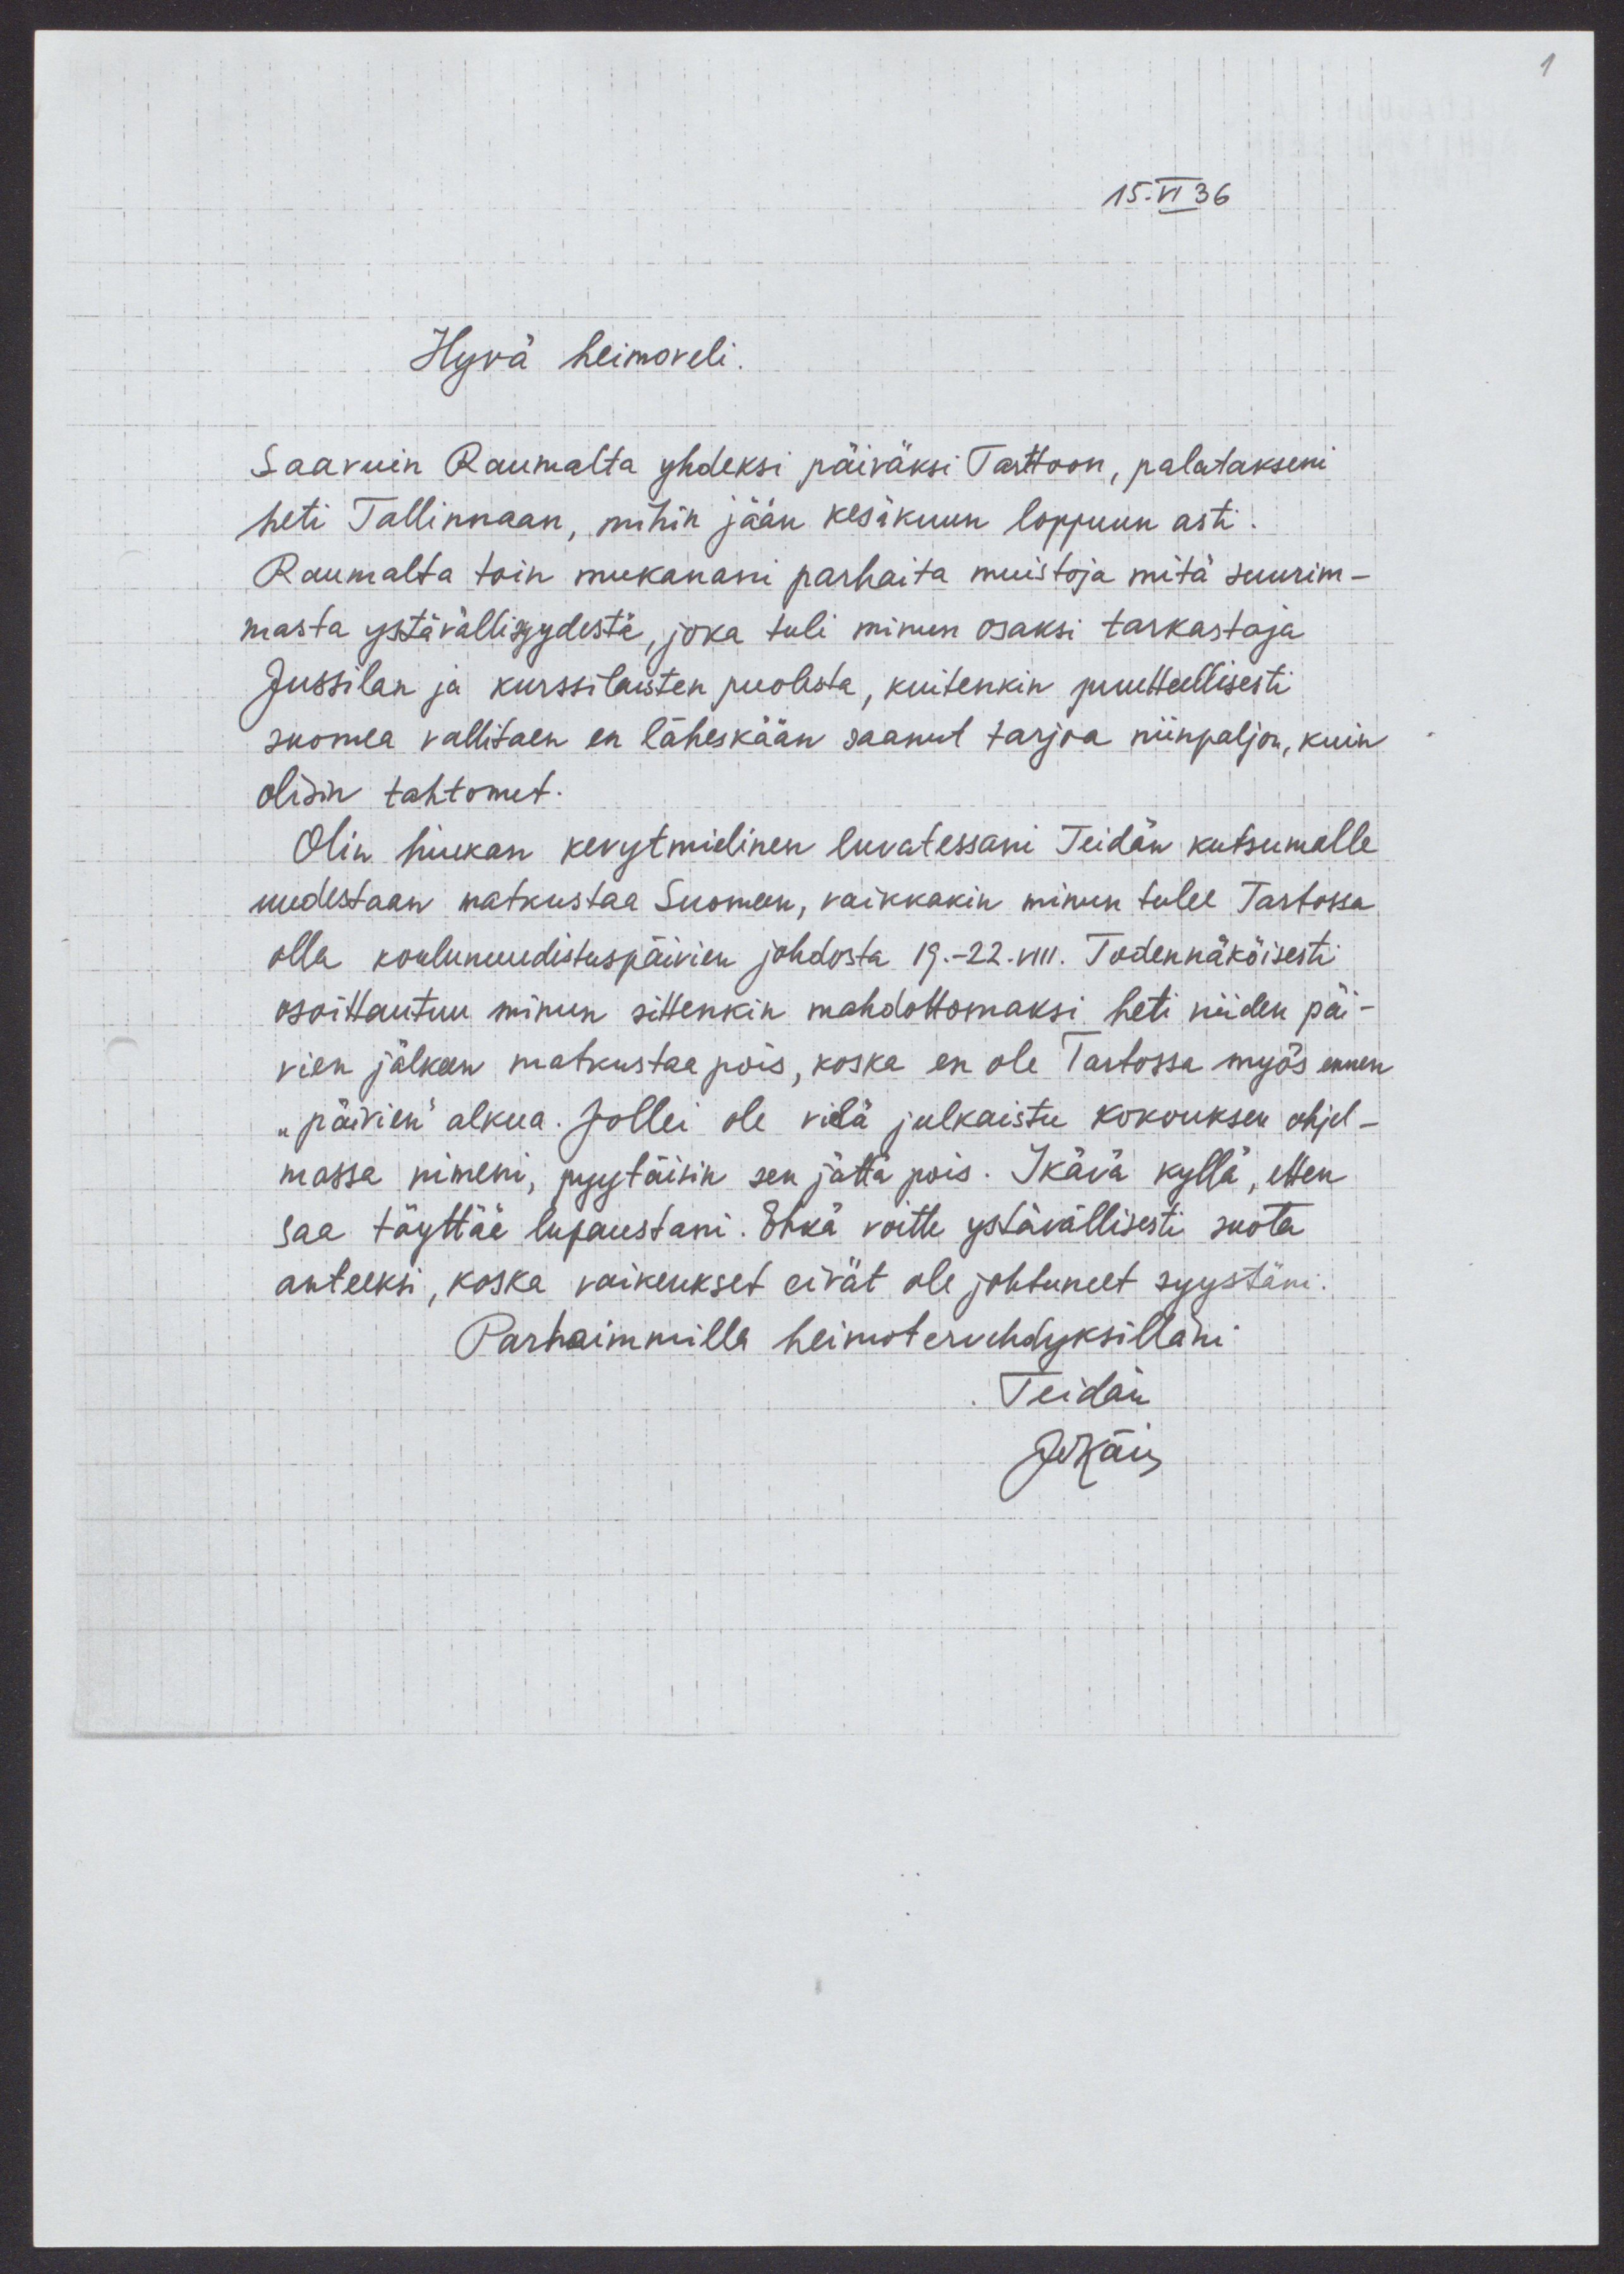 1
15.VI 36
Hyvä heimoveli.
Saavuin Raumalta yhdeksi päiväksi Tarttoon, palatakseni
heti Tallinnaan, mihin jään kesäkuun loppuun asti.
Raumalta toin mukanani parhaita muistoja mitä suurim-
masta ystävällisyydestä, joka tuli minun osaksi tarkastaja
Jussilan ja kurssilaisten puolesta, kuitenkin puutteellisesti
suomea vallitaen en läheskään saanut tarjoa niinpaljon, kuin
olisin tahtonut.
Olin hiukan kevytmielinen luvatessani Teidän kutsumalle
uudestaan matkustaa Suomeen, vaikkakin minun tulee Tartossa
olla koulunuudistuspäivien johdosta 19.-22.VIII. Todennäköisesti
osoittautuu minun sittenkin mahdottomaksi heti niiden päi-
vien jälkeen matkustaa pois, koska en ole Tartossa myös ennen
„päivien" alkua. Jollei ole vielä julkaistu kokouksen ohjel-
massa nimeni, pyytäisin sen jättä pois. Ikävä kyllä, etten
saa täyttää lupaustani. Ehkä voitte ystävällisesti suota
anteeksi, koska vaikeukset eivät ole johtuneet syystäni.
Parhaimmilla heimotervehdyksilläni
Teidän
JKäis